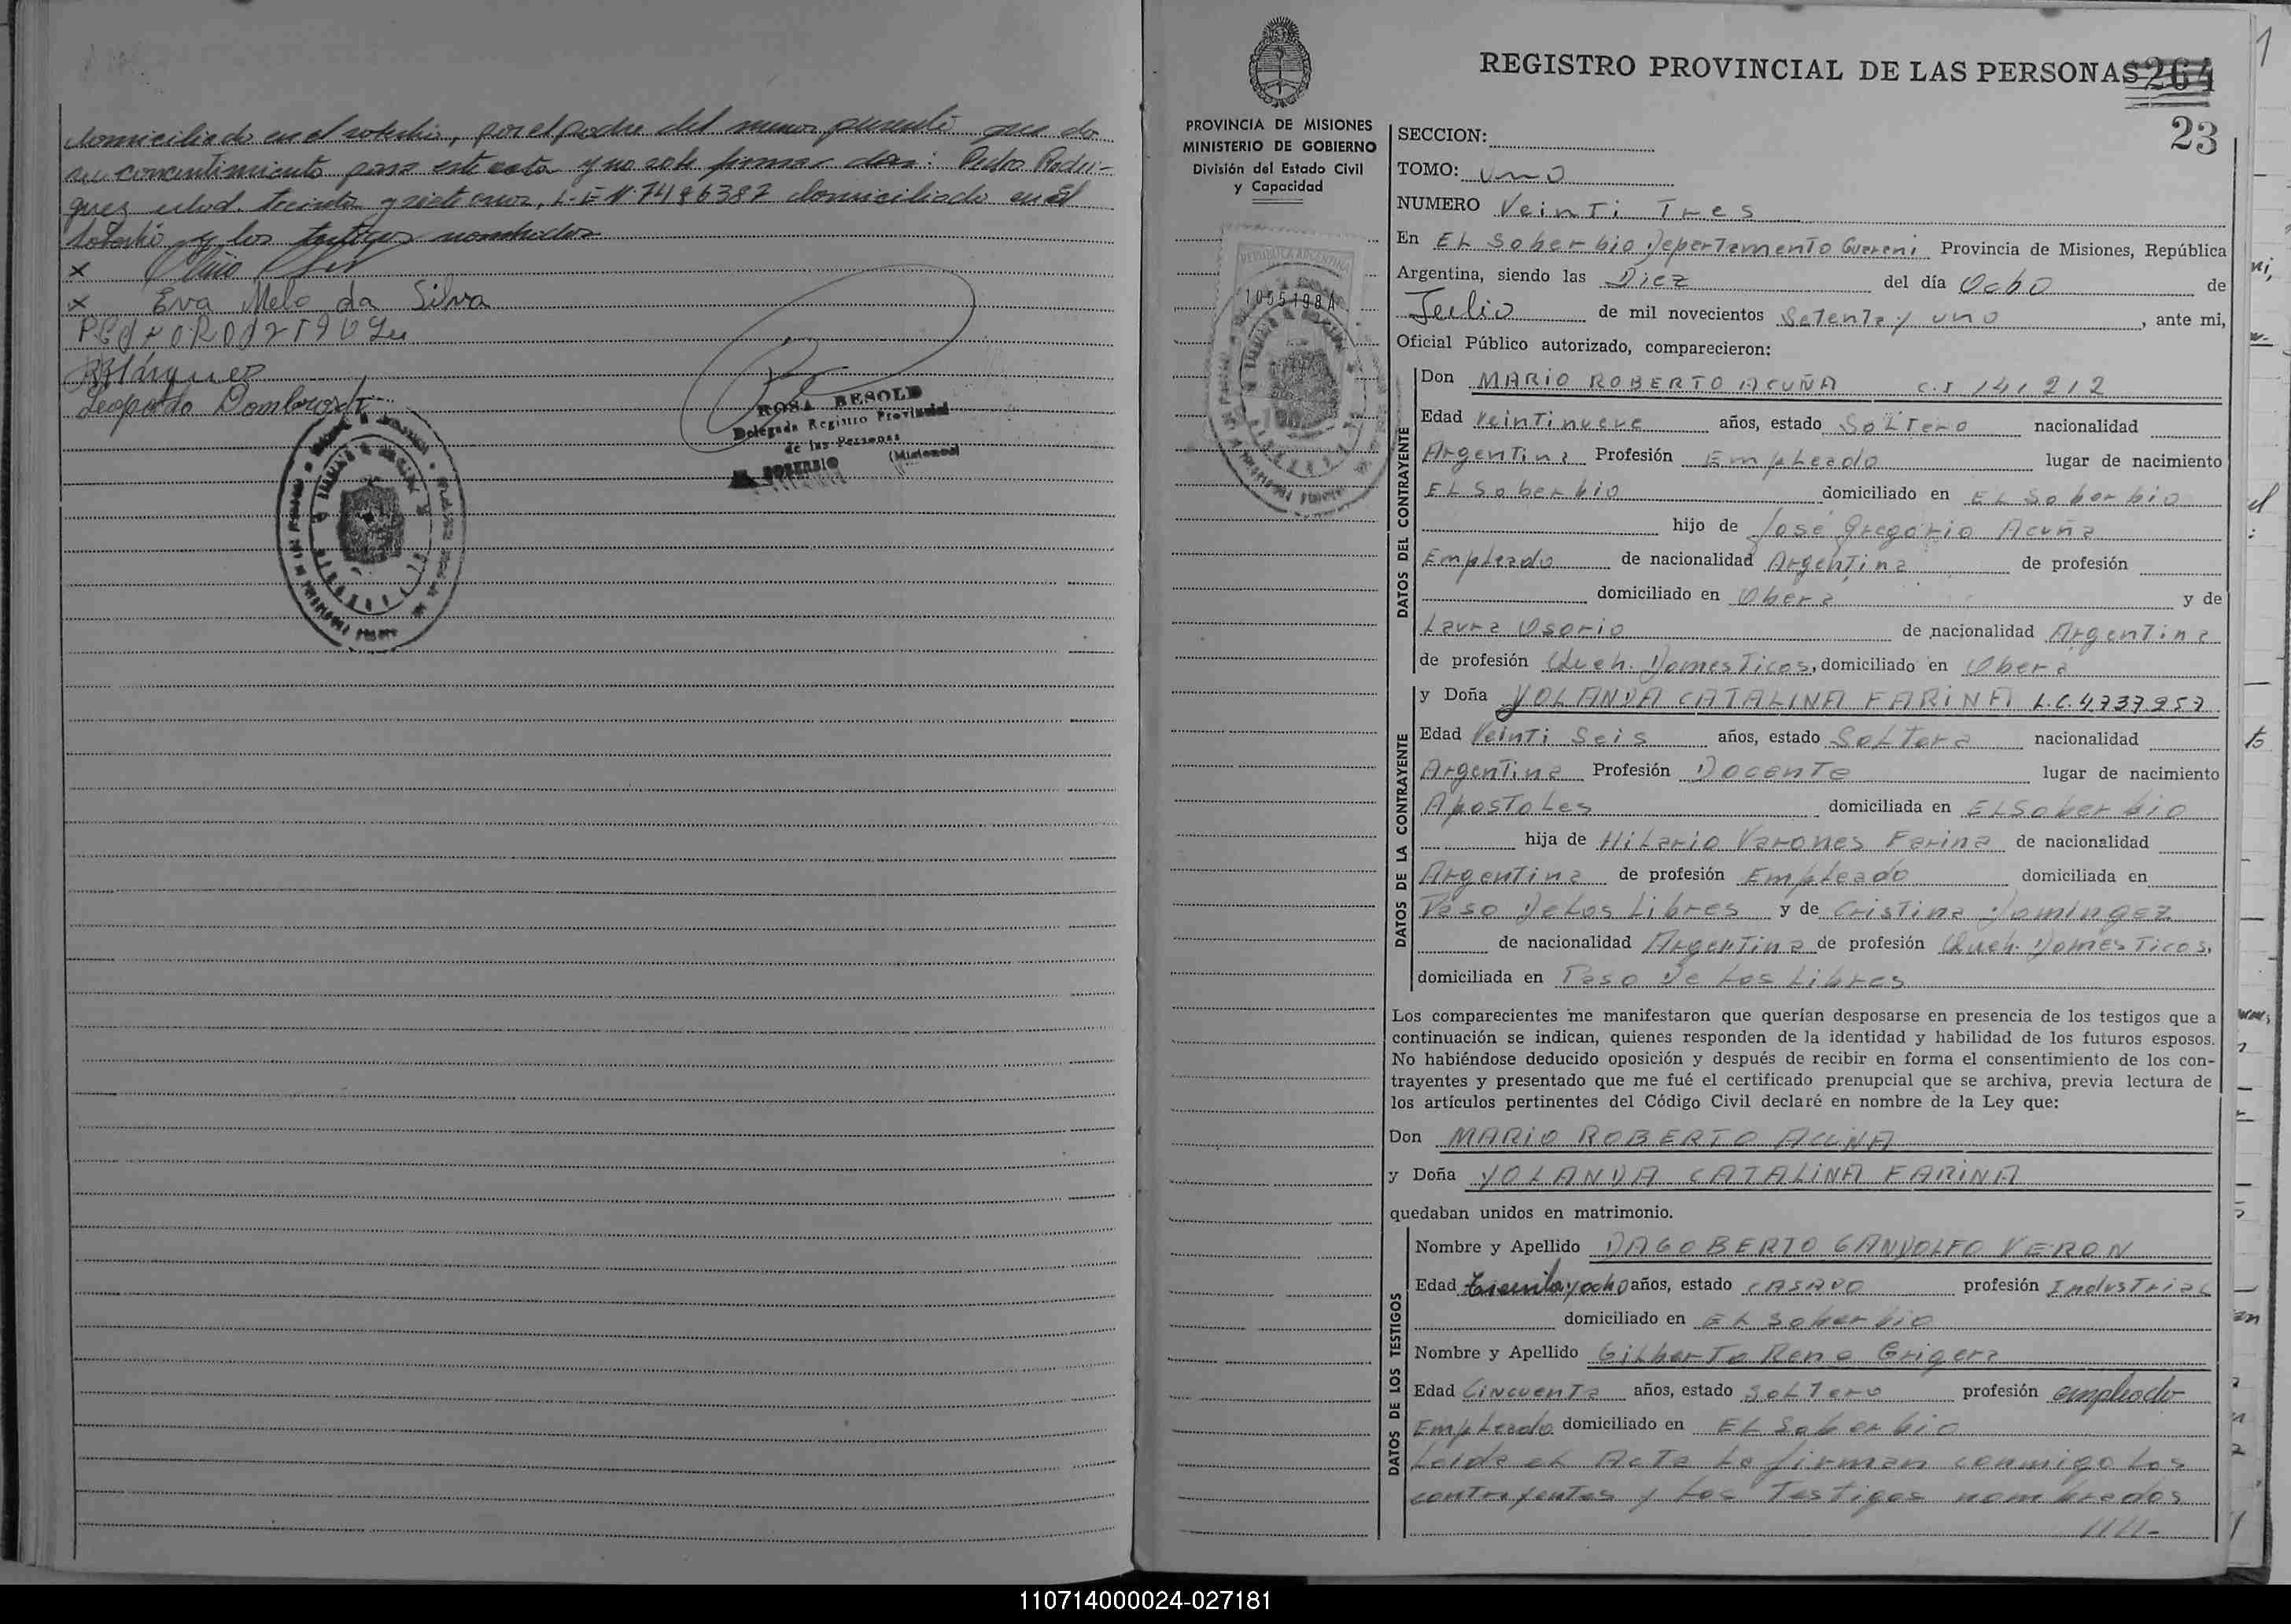 domiciliado en el soberbio, por el padre del menor presente que da
su concentimiento para este acta y no sabe firmar don: Pedro Rodri-
guez edad treinta y siete anos, L-E N. 7486387 domiciliado en El
Soberbio y los testigos nombrados
x
x Eva Melo da Silva
Leopoldo
ROSA BESOLD
Delegada Registro Provincial
de las Personas
EL SOBERBIO (Misiones)
REGISTRO PROVINCIAL DE LAS PERSONAS 264
23
PROVINCIA DE MISIONES
MINISTERIO DE GOBIERNO
División del Estado Civil
y Capacidad
REPUBLICA ARGENTINA
1055198A
SECCION:
TOMO: uno
NUMERO Veinti Tres
En EL Soberbio Departamento Guarani Provincia de Misiones, República
Argentina, siendo las Diez del día Ocho de
Julio de mil novecientos Setenta y uno, ante mi,
Oficial Público autorizado, comparecieron:
DATOS DEL CONTRAYENTE
Don MARIO ROBERTO ACUÑA C.I 141212
Edad Veintinueve años, estado Soltero nacionalidad
Argentina Profesión Empleado lugar de nacimiento
EL Soberbio domiciliado en EL Soberbio
hijo de José Gregorio Acuña
Empleado de nacionalidad Argentina de profesión
domiciliado en Obera y de
Laura Osorio de nacionalidad Argentina
de profesión Queh. Domesticos, domiciliado en Obera
DATOS DE LA CONTRAYENTE
y Doña YOLANDA CATALINA FARINA L.C. 4737957
Edad Veinti Seis años, estado Soltera nacionalidad
Argentina Profesión Docente lugar de nacimiento
Apostoles domiciliada en EL Soberbio
hija de Hilario Varones Farina de nacionalidad
Argentina de profesión Empleado domiciliada en
Paso De Los Libres y de Cristina Domingez
de nacionalidad Argentina de profesión Queh. Domesticos,
domiciliada en Paso De Los Libres
Los comparecientes me manifestaron que querían desposarse en presencia de los testigos que a
continuación se indican, quienes responden de la identidad y habilidad de los futuros esposos.
No habiéndose deducido oposición y después de recibir en forma el consentimiento de los con-
trayentes y presentado que me fué el certificado prenupcial que se archiva, previa lectura de
los artículos pertinentes del Código Civil declaré en nombre de la Ley que:
Don MARIO ROBERTO ACUÑA
y Doña YOLANDA CATALINA FARINA
quedaban unidos en matrimonio.
DATOS DE LOS TESTIGOS
Nombre y Apellido DAGOBERTO GANDOLFO VERON
Edad Treinta y ocho años, estado CASADO profesión Industrial
domiciliado en EL Soberbio
Nombre y Apellido Gilberto Rene Grigera
Edad Cincuenta años, estado Soltero profesión empleado
Empleado domiciliado en EL Soberbio
Leida el Acta La firman conmigo Los
contrayentes y Los Testigos nombrados
////-
110714000024-027181